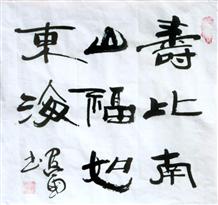 壽比南
山福如
東海